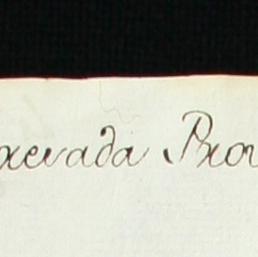 xervada Prov